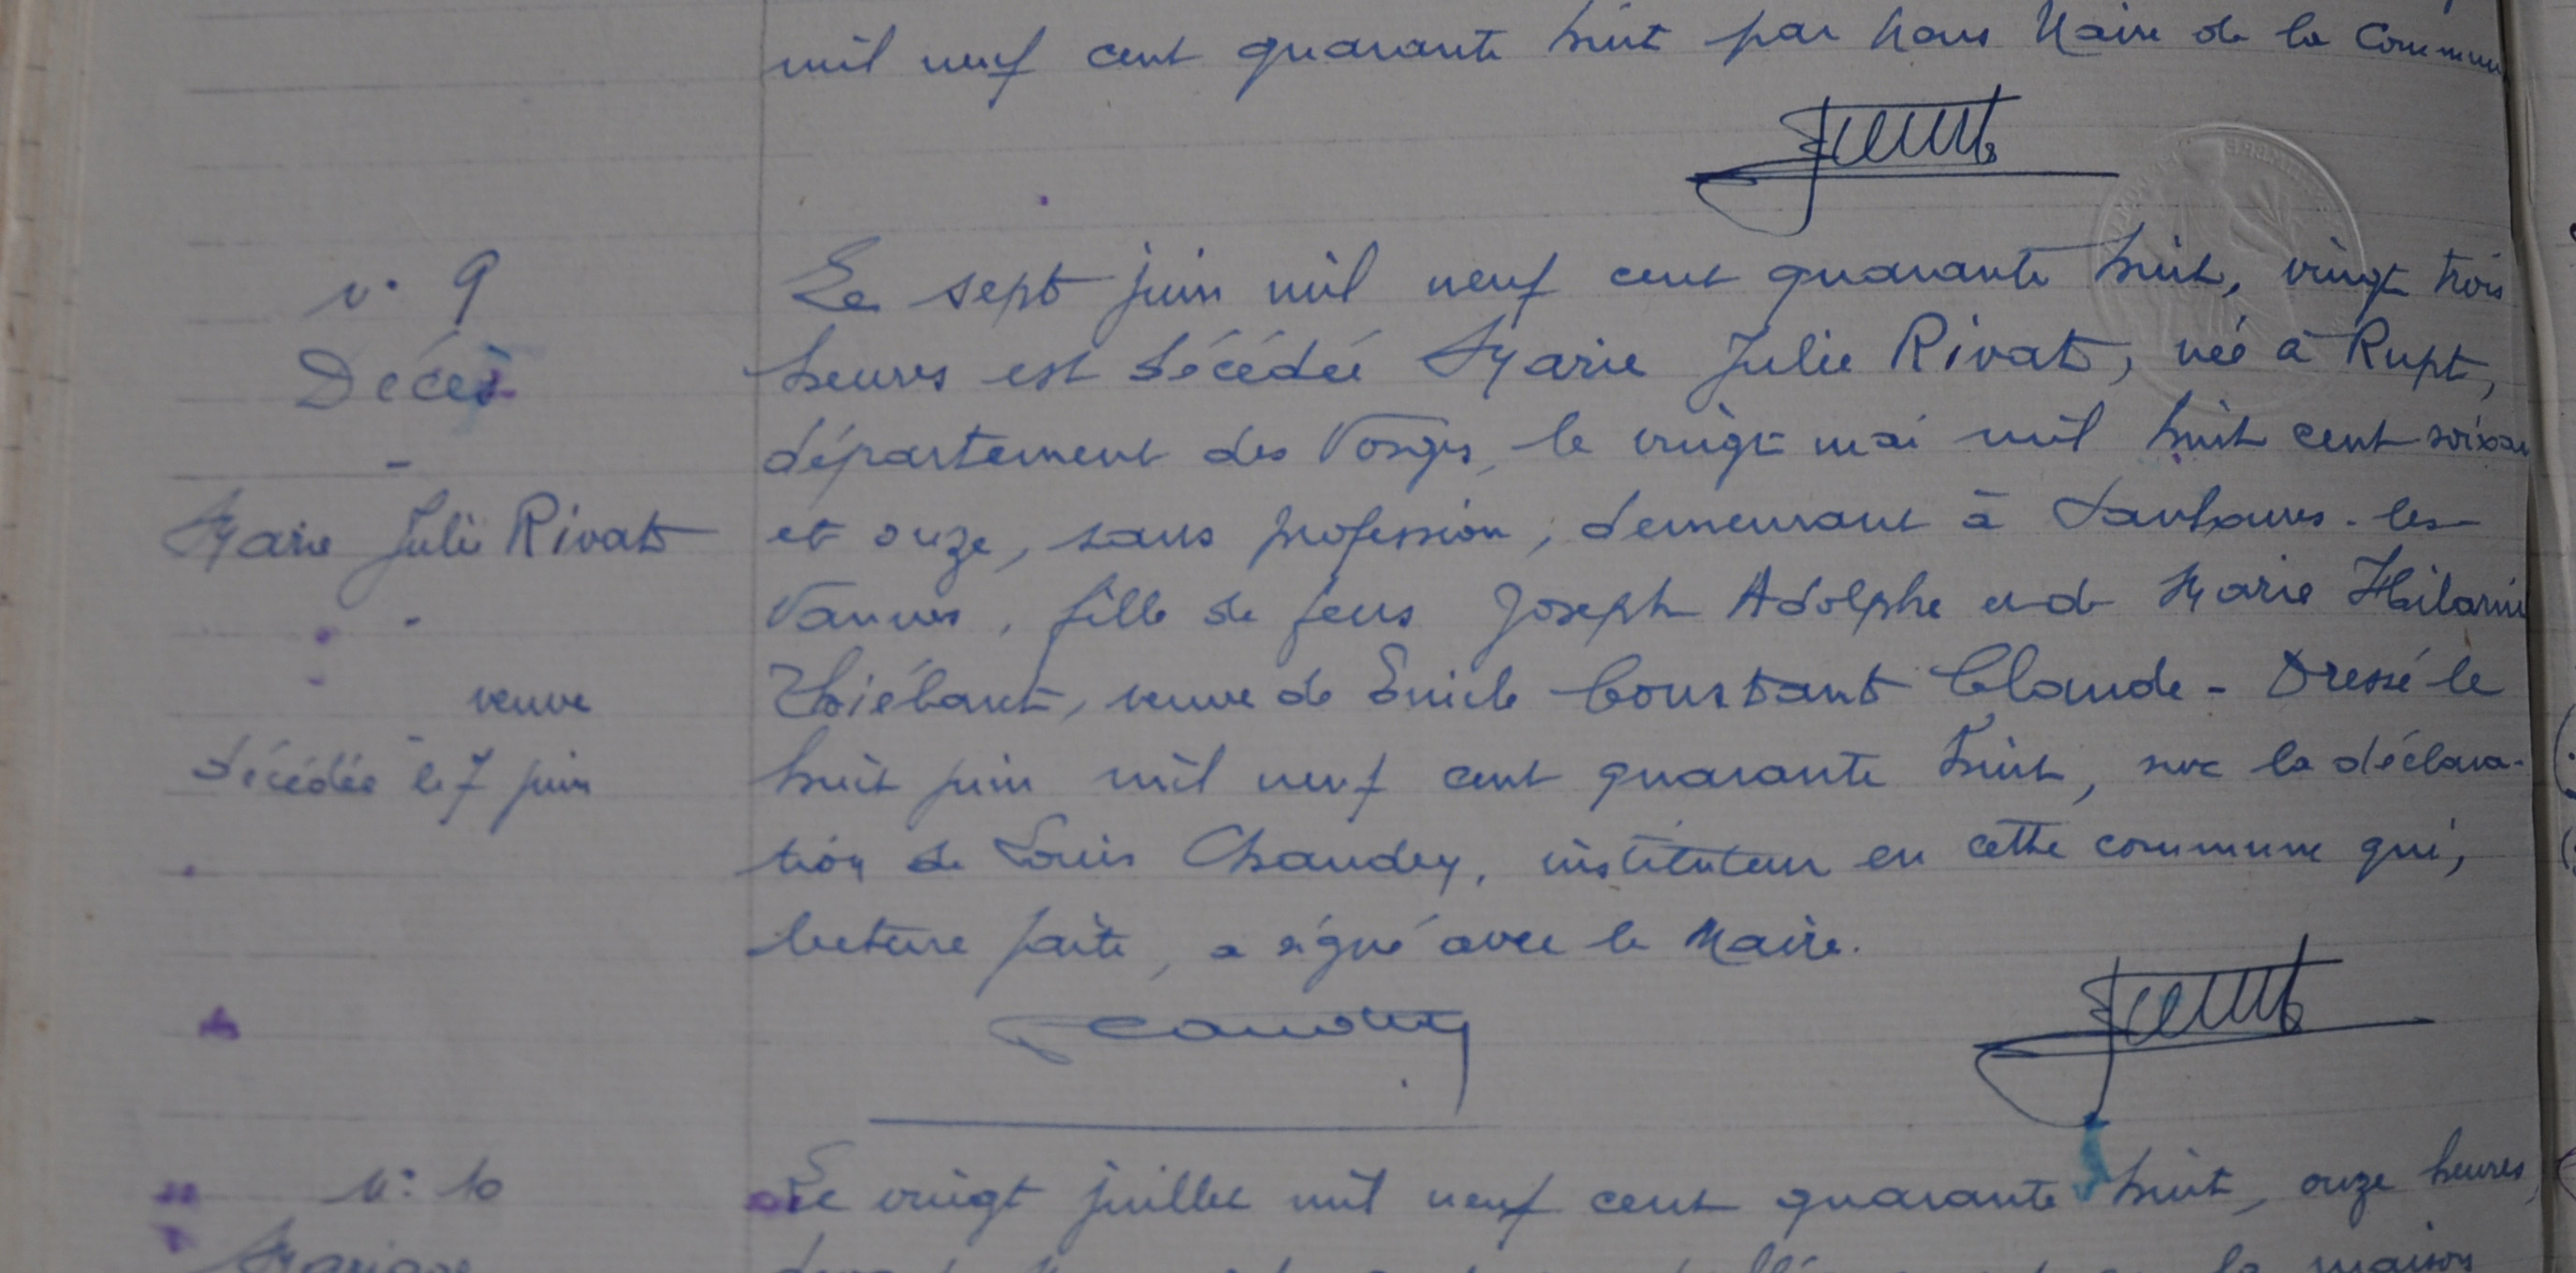 mil neuf cent quarante huit par Nous Maire de la Commune
n° 9
Décès
-
Marie Julie Rivat
-
veuve
décédée le 7 juin
Le sept juin mil neuf cent quarante huit, vingt trois
heures est décédée Marie Julie Rivat, née à Rupt,
département des Vosges, le vingt mai mil huit cent soixan
et onze, sans profession, demeurant à Dambenoît-les-
Vannes, fille de feus Joseph Adolphe et de Marie Hilarie
Thiébaut, veuve de Emile Constant Claude - Dressé le
huit juin mil neuf cent quarante huit, sur la déclara-
tion de Louis Chaudey, instituteur en cette commune qui,
lecture faite, a signé avec le Maire.
Chaudey
n° 10
Mariage
Le vingt juillet mil neuf cent quarante huit, onze heures,
la maison